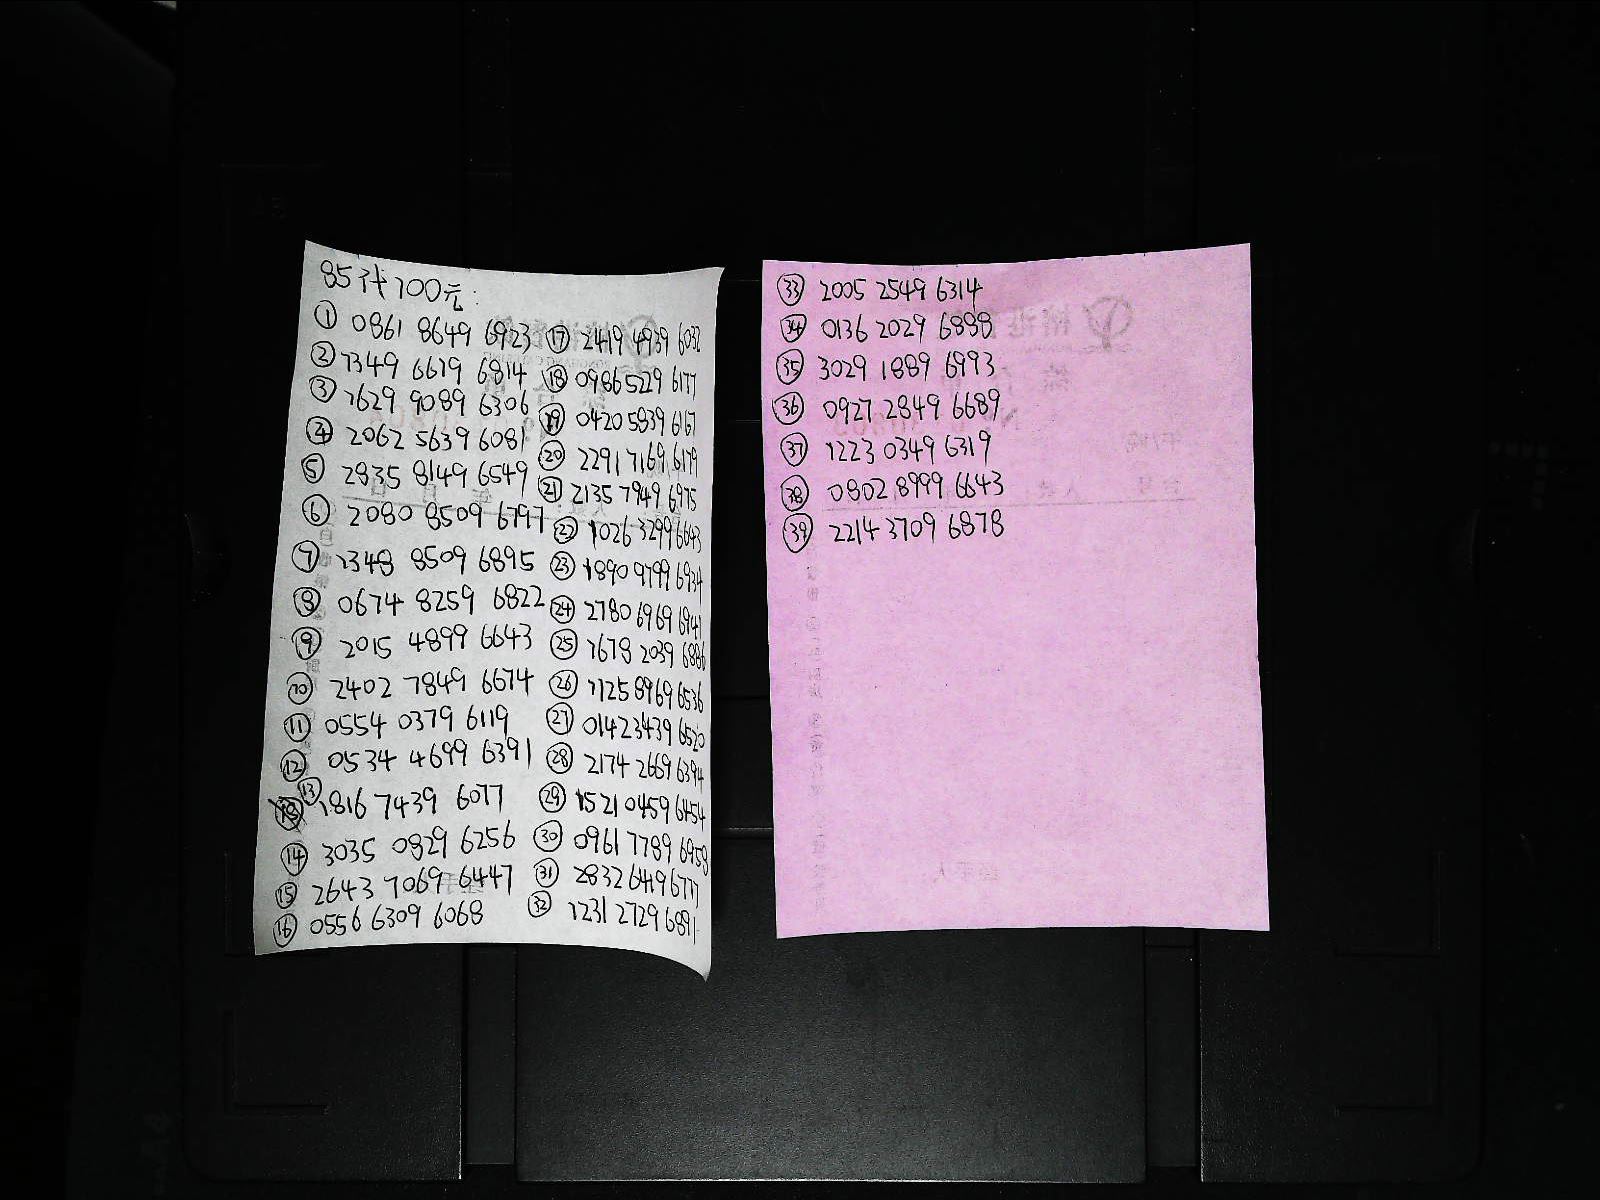 85代100元:
① 0861 8649 6923
② 1349 6619 6814
③ 1629 9089 6306
④ 2062 5639 6081
⑤ 2835 8149 6549
⑥ 2080 8509 6797
⑦ 1348 8509 6895
⑧ 0674 8259 6822
⑨ 2015 4899 6643
⑩ 2402 7849 6674
⑪ 0554 0379 6119
⑫ 0534 4699 6391
⑬ 1816 7439 6077
⑭ 3035 0829 6256
⑮ 2643 7069 6447
⑯ 0556 6309 6068
⑰ 2419 4939 6032
⑱ 0986 5229 6177
⑲ 0420 5839 6167
⑳ 2291 7169 6179
㉑ 2135 7949 6975
㉒ 1026 3299 6643
㉓ 1890 9799 6934
㉔ 2780 6969 6941
㉕ 1678 2039 6886
㉖ 1125 8969 6536
㉗ 0142 3439 6520
㉘ 2174 2669 6394
㉙ 1521 0459 6454
㉚ 0961 7789 6958
㉛ 2832 6419 6777
㉜ 1231 2729 6891
㉝ 2005 2549 6314
㉞ 0136 2029 6888
㉟ 3029 1889 6993
㊱ 0927 2849 6689
㊲ 1223 0349 6319
㊳ 0802 8999 6643
㊴ 2214 3709 6878